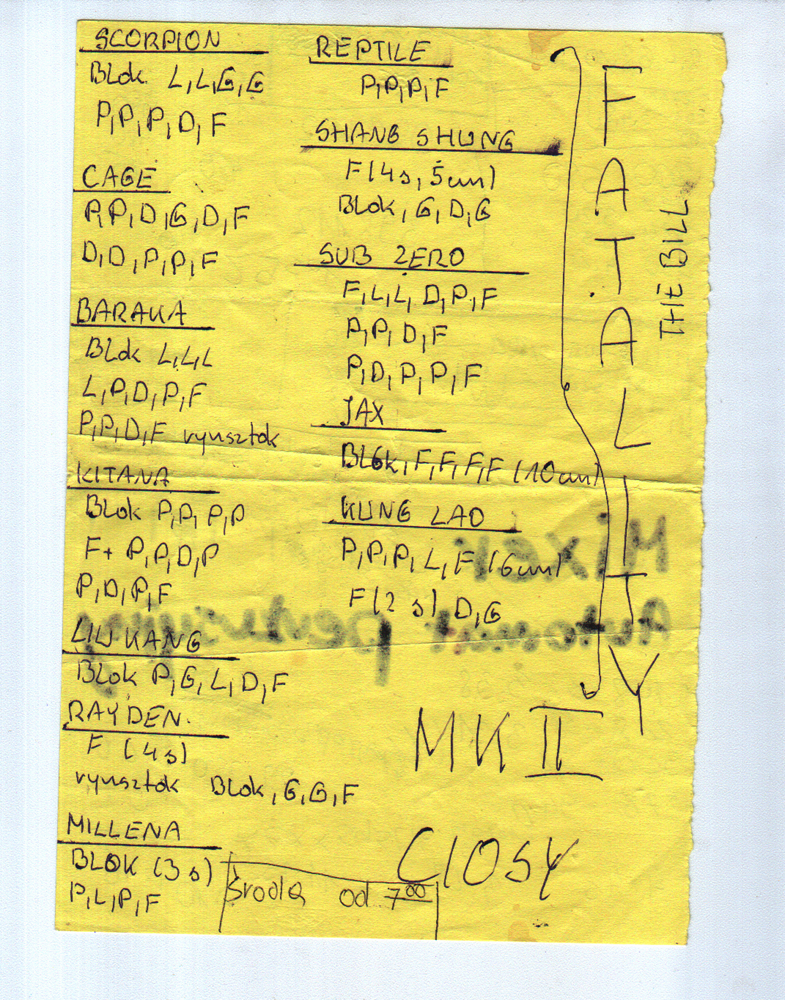 SCORPION
Blok L,L,G,G
P,P,P,D,F
CAGE
P,P,D,G,D,F
D,D,P,P,F
BARAKA
Blok L,L,L
L,P,D,P,F
P,P,D,F rynsztok
KITANA
Blok P,P,P,P
F+ P,P,D,P
P,D,P,F
LIU KANG
Blok P,G,L,D,F
RAYDEN
F (4s)
rynsztok Blok,G,G,F
MILLENA
BLOK (3s)
P,L,P,F
REPTILE
P,P,P,F
SHANG SHUNG
F (4s, 5cm)
Blok,G,D,G
SUB ZERO
F,L,L,D,P,F
P,P,D,F
P,D,P,P,F
JAX
BLOK,F,F,F,F (10cm)
KUNG LAO
P,P,P,L,F (6cm)
F (2s) D,G
FATALITY
THE BILL
MK II
CIOSY
Środa od 7 00
Mixer
Automat perkusyjny